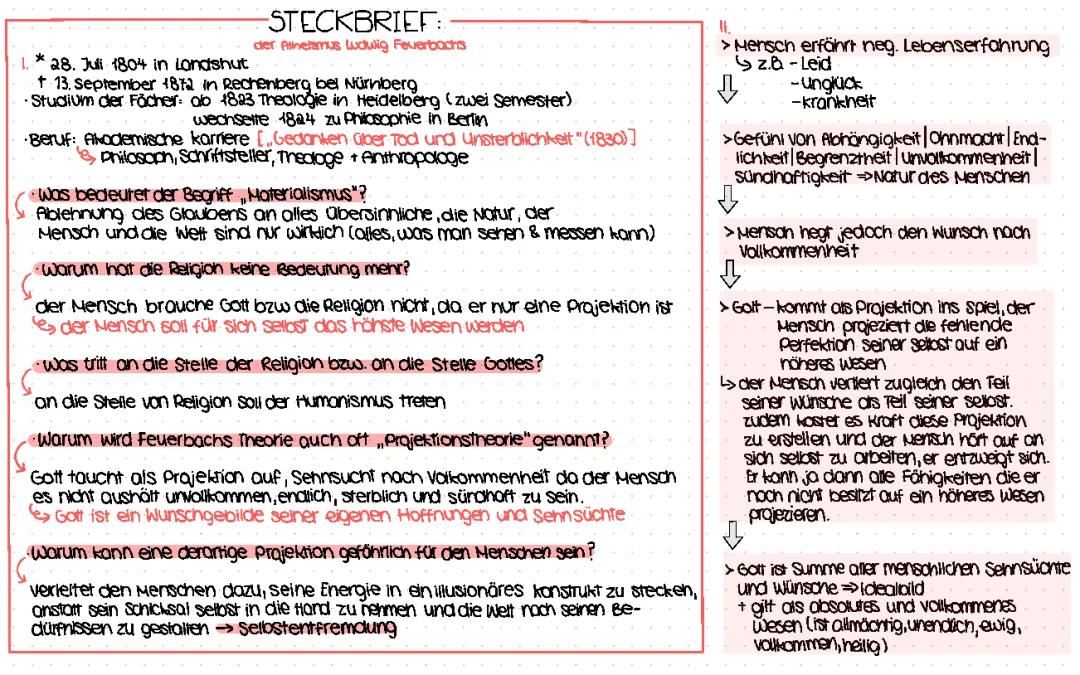 STECKBRIEF:
der Atheismus Ludwig Feuerbachs
I. * 28. Juli 1804 in Landshut
† 13. September 1872 in Rechenberg bei Nürnberg
· Studium der Fächer: ab 1823 Theologie in Heidelberg (zwei Semester)
wechselte 1824 zu Philosophie in Berlin
· Beruf: Akademische Karriere [„Gedanken über Tod und Unsterblichkeit" (1830)]
↳ Philosoph, Schriftsteller, Theologe + Anthropologe
· Was bedeutet der Begriff „Materialismus"?
Ablehnung des Glaubens an alles Übersinnliche, die Natur, der
Mensch und die Welt sind nur wirklich (alles, was man sehen & messen kann)
· Warum hat die Religion keine Bedeutung mehr?
der Mensch brauche Gott bzw die Religion nicht, da er nur eine Projektion ist
↳ der Mensch soll für sich selbst das höhste Wesen werden
· Was tritt an die Stelle der Religion bzw. an die Stelle Gottes?
an die Stelle von Religion soll der Humanismus treten
· Warum wird Feuerbachs Theorie auch oft „Projektionstheorie" genannt?
Gott taucht als Projektion auf, Sehnsucht nach Volkommenheit da der Mensch
es nicht aushält unvollkommen, endlich, sterblich und sündhaft zu sein.
↳ Gott ist ein Wunschgebilde seiner eigenen Hoffnungen und Sehnsüchte
· Warum kann eine derartige Projektion gefährlich für den Menschen sein?
verleitet den Menschen dazu, seine Energie in ein illusionäres Konstrukt zu stecken,
anstatt sein Schicksal selbst in die Hand zu nehmen und die Welt nach seinen Be-
dürfnissen zu gestalten → Selbstentfremdung
II.
> Mensch erfährt neg. Lebenserfahrung
↳ z.B. - Leid
- Unglück
- Krankheit
> Gefühl von Abhängigkeit | Ohnmacht | End-
lichkeit | Begrenztheit | Unvollkommenheit |
Sündhaftigkeit ⇒ Natur des Menschen
> Mensch hegt jedoch den Wunsch nach
Vollkommenheit
> Gott – kommt als Projektion ins Spiel, der
Mensch projeziert die fehlende
Perfektion seiner selbst auf ein
höheres Wesen
↳ der Mensch verliert zugleich den Teil
seiner Wünsche als Teil seiner selbst.
zudem kostet es Kraft diese Projektion
zu erstellen und der Mensch hört auf an
sich selbst zu arbeiten, er entzweigt sich.
Er kann ja dann alle Fähigkeiten die er
noch nicht besitzt auf ein höheres Wesen
projezieren.
> Gott ist Summe aller menschlichen Sehnsüchte
und Wünsche ⇒ Idealbild
+ gilt als absolutes und vollkommenes
Wesen (ist allmächtig, unendlich, ewig,
vollkommen, heilig)